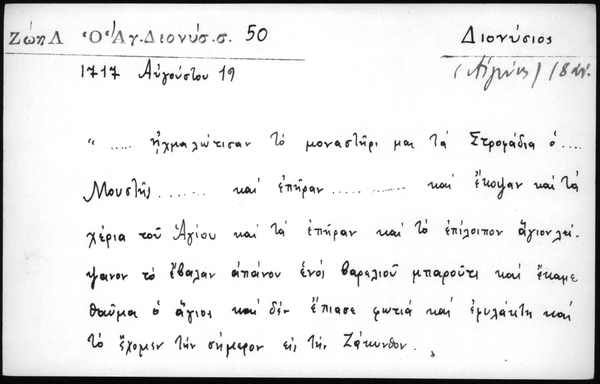 Ζώη Λ Ὁ Ἁγ. Διονύσ. σ. 50 Διονύσιος
1717 Αὐγούστου 19 (Αἰγίνης) 18 αἰ.
" ..... ᾐχμαλώτισαν τὸ μοναστῆρι μας τὰ Στροφάδια ὁ ....
Μουστῆς ....... καὶ ἐπῆραν .......... καὶ ἔκοψαν καὶ τὰ
χέρια τοῦ Ἁγίου καὶ τὰ ἐπῆραν καὶ τὸ ἐπίλοιπον ἅγιον λεί-
ψανον τὸ ἔβαλαν ἀπάνου ἑνὸς βαρελιοῦ μπαροῦτι καὶ ἔκαμε
θαῦμα ὁ ἅγιος καὶ δὲν ἔπιασε φωτιὰ καὶ ἐφυλάκτη καὶ
τὸ ἔχομεν τὴν σήμερον εἰς τὴς Ζάκυνθον.